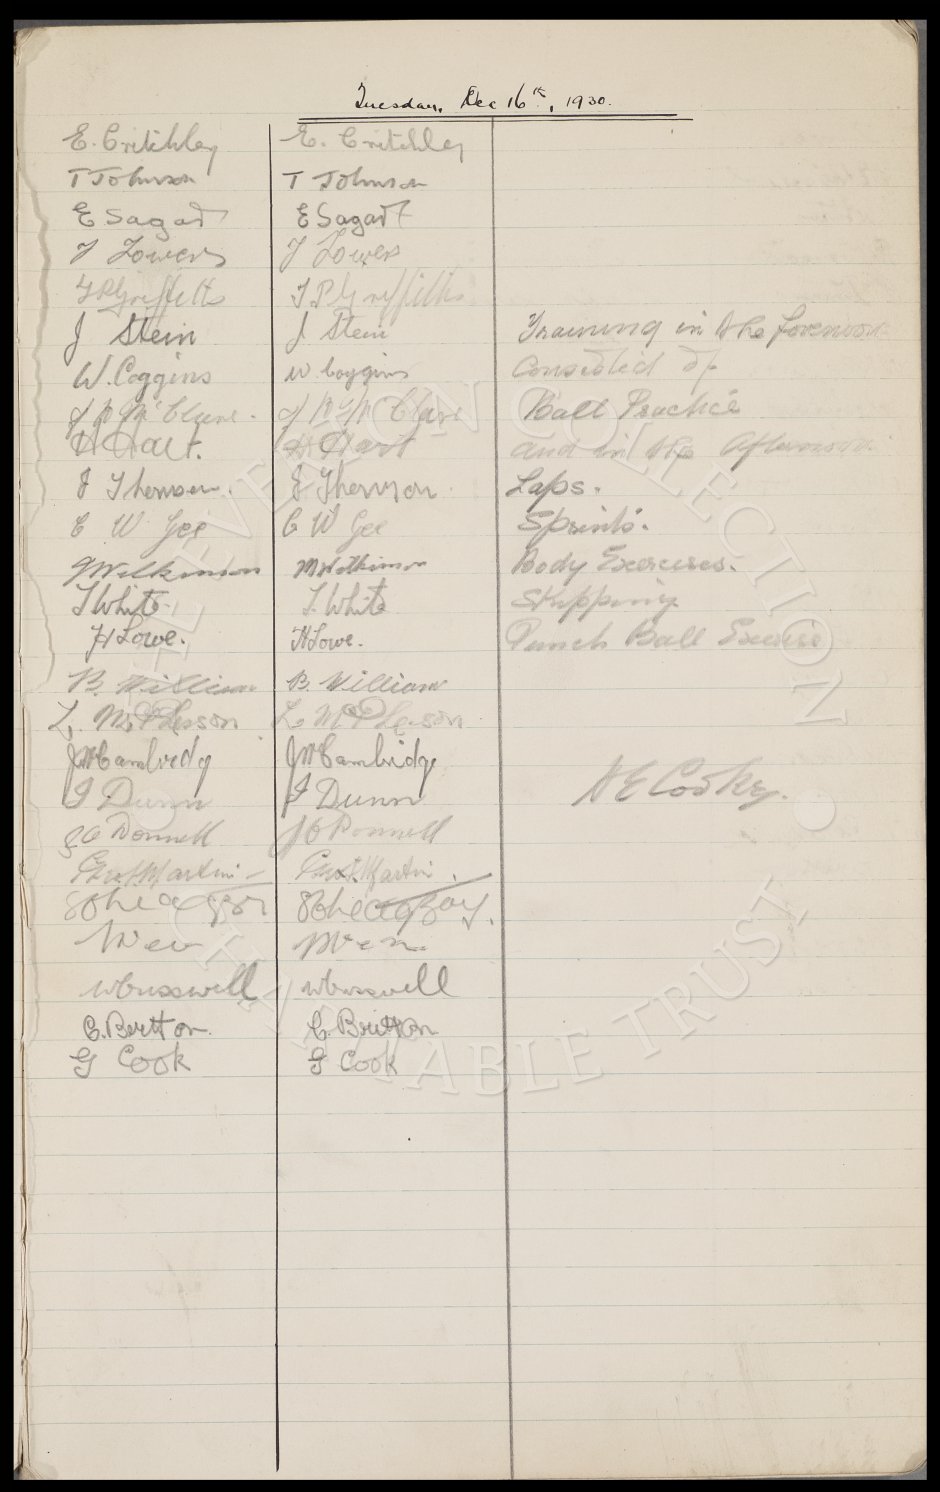 Tuesday, Dec 16th, 1930.
E. Critchley E. Critchley
T Johnson T Johnson
E Sagar E Sagar
T Lowers T Lowers
T P Griffiths T P Griffiths
J Stein J Stein Training in the forenoon
W. Coggins W. Coggins Consisted of
J R McClure J R McClure Ball Practice
H Hart. H Hart and in the Afternoon
J Thomson. J Thomson. Laps.
C W Gee C W Gee Sprints.
J Wilkinson M Wilkinson Body Exercises.
T White T. White Skipping
H Lowe. H Lowe. Punch Ball Exercise
B. William B. William
L. McPherson L McPherson
J W Cambridge J W Cambridge
J Dunn J Dunn H E Cooke.
J O Donnell J O Donnell
Geo. Martin Geo. Martin
W Cresswell W Cresswell
C. Britton C Britton
G Cook G Cook
EVERTON COLLECTION
CHARITABLE TRUST